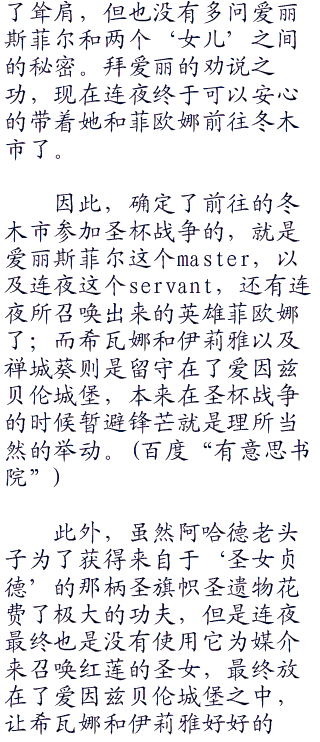 了耸肩，但也没有多问爱丽
斯菲尔和两个‘女儿’之间
的秘密。拜爱丽的劝说之
功，现在连夜终于可以安心
的带着她和菲欧娜前往冬木
市了。
因此，确定了前往的冬
木市参加圣杯战争的，就是
爱丽斯菲尔这个master，以
及连夜这个servant，还有连
夜所召唤出来的英雄菲欧娜
了；而希瓦娜和伊莉雅以及
禅城葵则是留守在了爱因兹
贝伦城堡，本来在圣杯战争
的时候暂避锋芒就是理所当
然的举动。(百度“有意思书
院”)
此外，虽然阿哈德老头
子为了获得来自于‘圣女贞
德’的那柄圣旗帜圣遗物花
费了极大的功夫，但是连夜
最终也是没有使用它为媒介
来召唤红莲的圣女，最终放
在了爱因兹贝伦城堡之中，
让希瓦娜和伊莉雅好好的